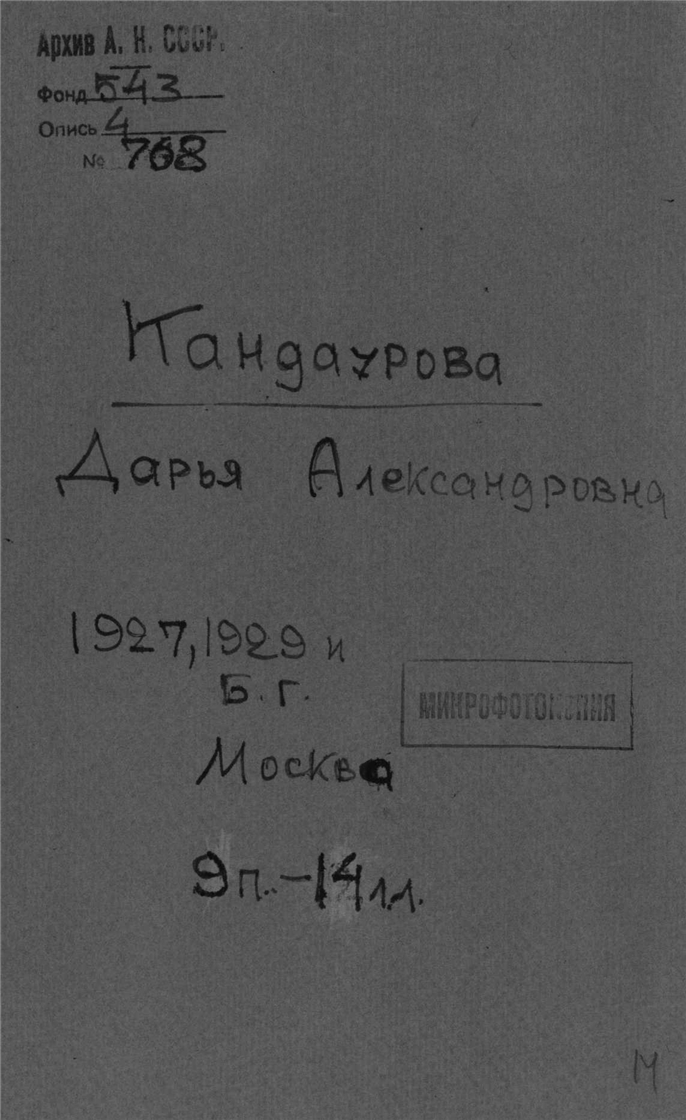 Архив А. Н. СССР.
Фонд 543
Опись 4
№ 768
Кандаурова
Дарья Александровна
1927, 1929 и
Б. г.
МИКРОФОТОКОПИЯ
Москва
9п. – 14 лл.
М